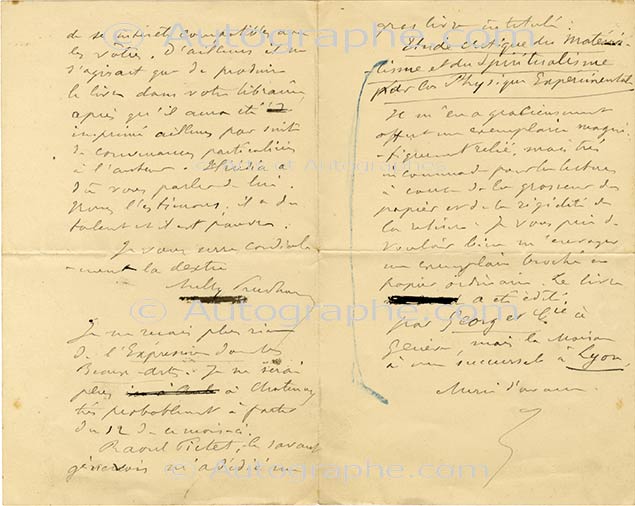 de ses intérêts compatibles avec
les vôtres. D'ailleurs il ne
s'agirait que de produire
le livre dans votre librairie
après qu'il aura été
imprimé ailleurs par suite
de convenances particulières
à l'auteur. Hérédia a
dû vous parler de lui.
Nous l'estimons, il a du
talent et il est pauvre.
Je vous serre cordiale
-ment la dextre
Sully Prudhomme
Je ne reçois plus rien
de l'Expression dans les
Beaux-Arts. Je ne serai
plus à Chatenay
très probablement à partir
du 12 de ce mois-ci.
Raoul Pictet, le savant
génevois m'a dédié un
gros livre intitulé :
Etude critique du Matéria-
lisme et du Spiritualisme
par la Physique Expérimentale
Il m'en a gracieusement
offert un exemplaire magni
-fiquement relié, mais très
incommode pour la lecture
à cause de la grosseur du
papier et de la rigidité de
la reliure. Je vous prie de
vouloir bien m'envoyer
un exemplaire broché en
papier ordinaire. Le livre
a été édité
par Georg et Cie à
Genève, mais la Maison
a une succursale à Lyon.
Merci d'avance.
© Autographe.com
© Arts et Autographes
© Autographe.com
© Autographe.com